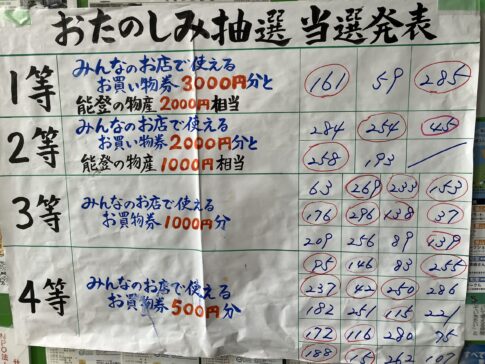 おたのしみ抽選 当選発表
1等
みんなのお店で使える
お買い物券3000円分と
能登の物産2000円相当
161 59 285
2等
みんなのお店で使える
お買い物券2000円分と
能登の物産1000円相当
284 254 45
258 193
3等
みんなのお店で使える
お買物券1000円分
63 269 233 153
176 296 138 37
209 256 89 139
4等
みんなのお店で使える
お買物券500円分
95 146 83 255
237 42 250 286
182 251 115 221
172 116 280 75
188 262 107